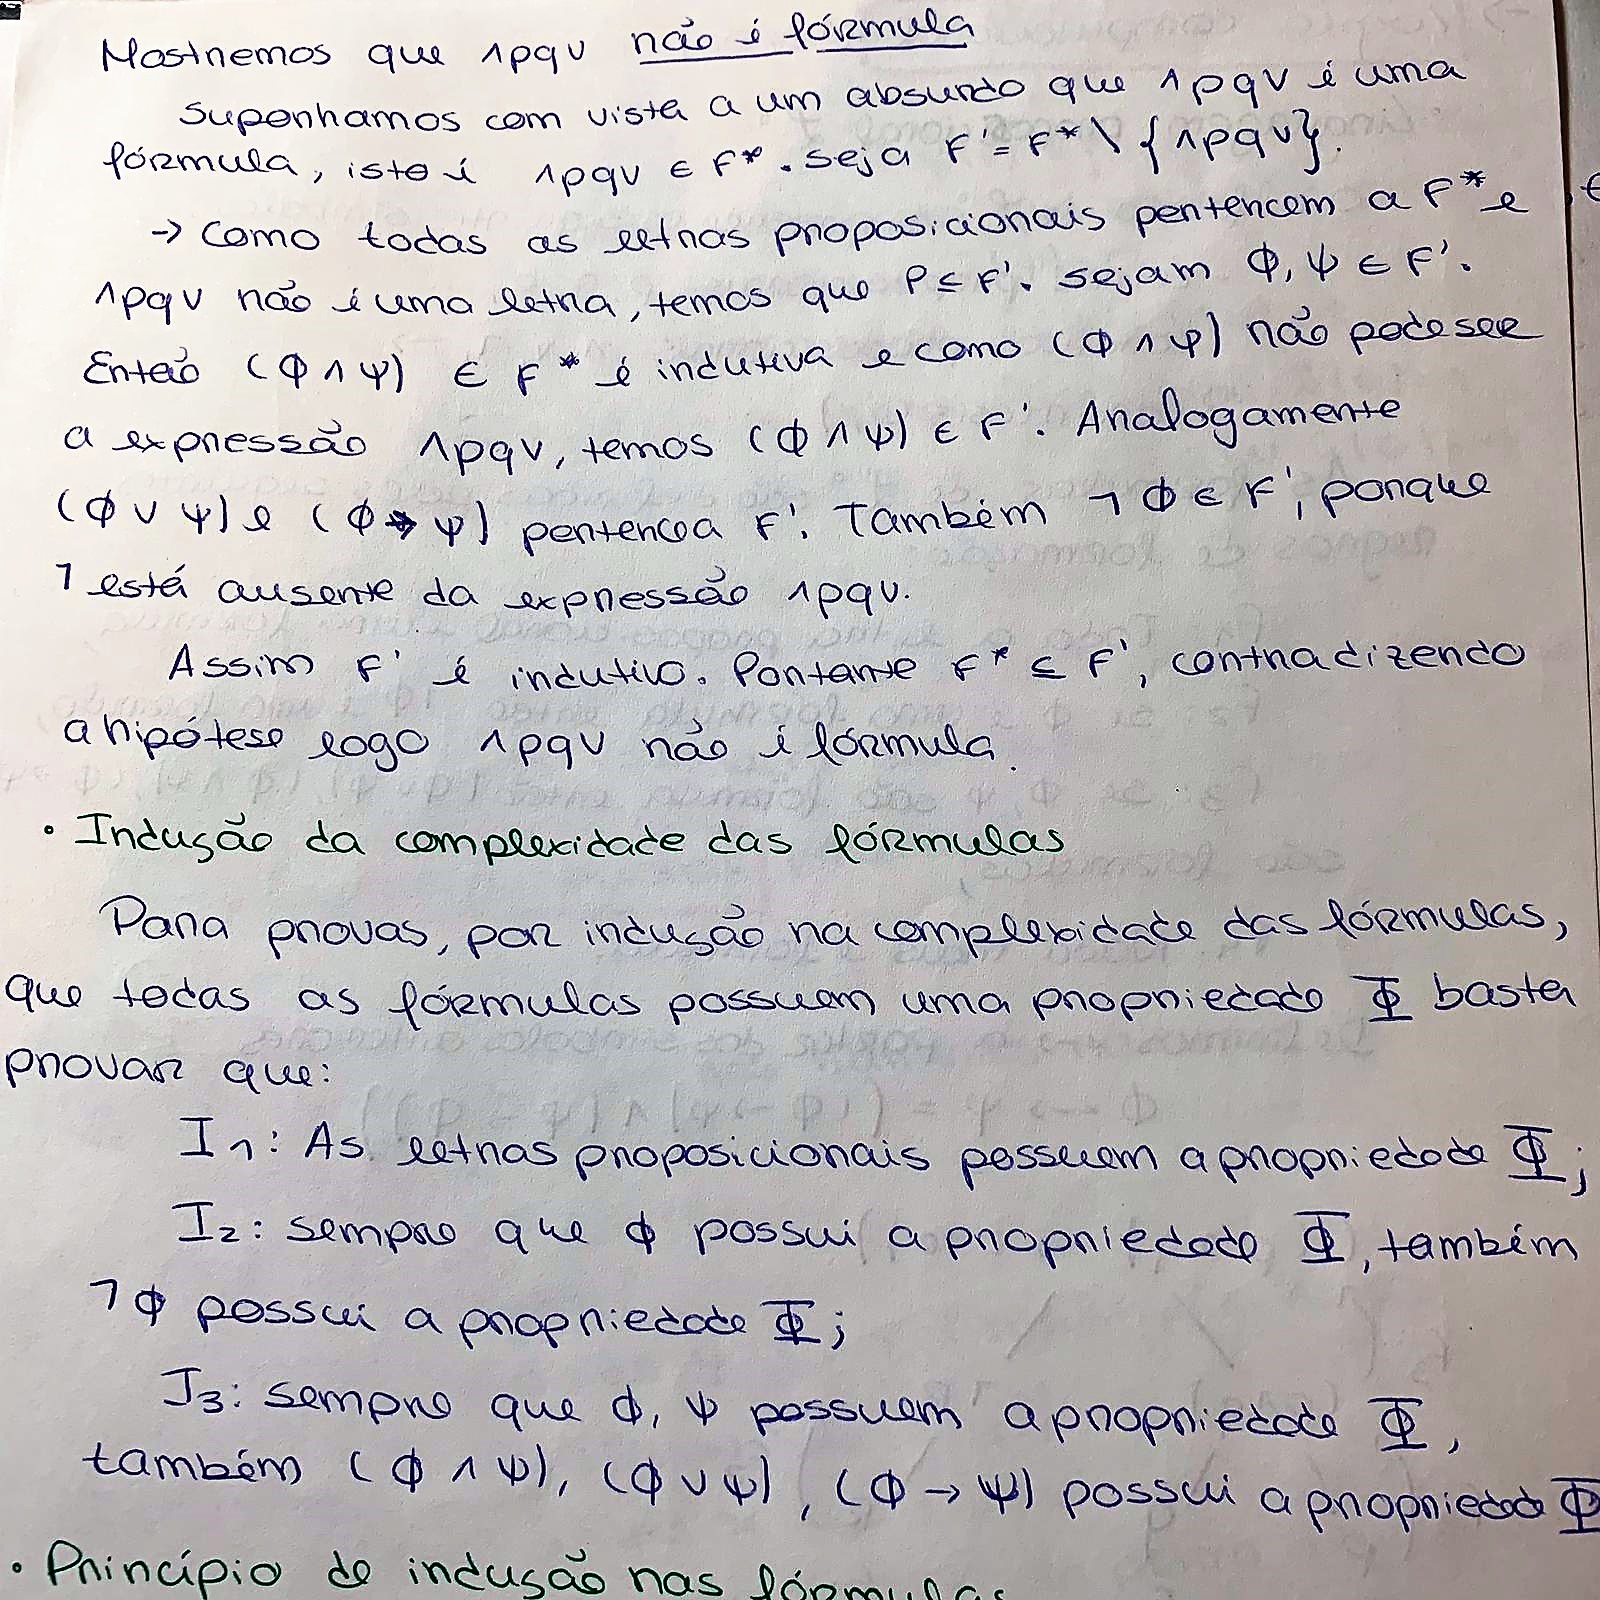 Mostremos que ∧pq∨ não é fórmula
Suponhamos com vista a um absurdo que ∧pq∨ é uma
fórmula, isto é ∧pq∨ ∈ F*. seja F' = F* \ {∧pq∨}.
→ Como todas as letras proposicionais pertencem a F* e
∧pq∨ não é uma letra, temos que P ⊆ F'. sejam Φ, Ψ ∈ F'.
Então (Φ ∧ Ψ) ∈ F* é indutiva e como (Φ ∧ Ψ) não pode ser
a expressão ∧pq∨, temos (Φ ∧ Ψ) ∈ F'. Analogamente
(Φ ∨ Ψ) e (Φ → Ψ) pertence a F'. Também ¬Φ ∈ F', porque
¬ está ausente da expressão ∧pq∨.
Assim F' é indutivo. Portante F* ⊆ F', contradizendo
a hipótese logo ∧pq∨ não é fórmula.
• Indução da complexidade das fórmulas
Para provas, por indução na complexidade das fórmulas,
que todas as fórmulas possuem uma propriedade Φ basta
provar que:
I1: As letras proposicionais possuem a propriedade Φ;
I2: sempre que Φ possui a propriedade Φ, também
¬Φ possui a propriedade Φ;
I3: sempre que Φ, Ψ possuem a propriedade Φ,
também (Φ ∧ Ψ), (Φ ∨ Ψ), (Φ → Ψ) possui a propriedade Φ
• Princípio de indução nas fórmulas